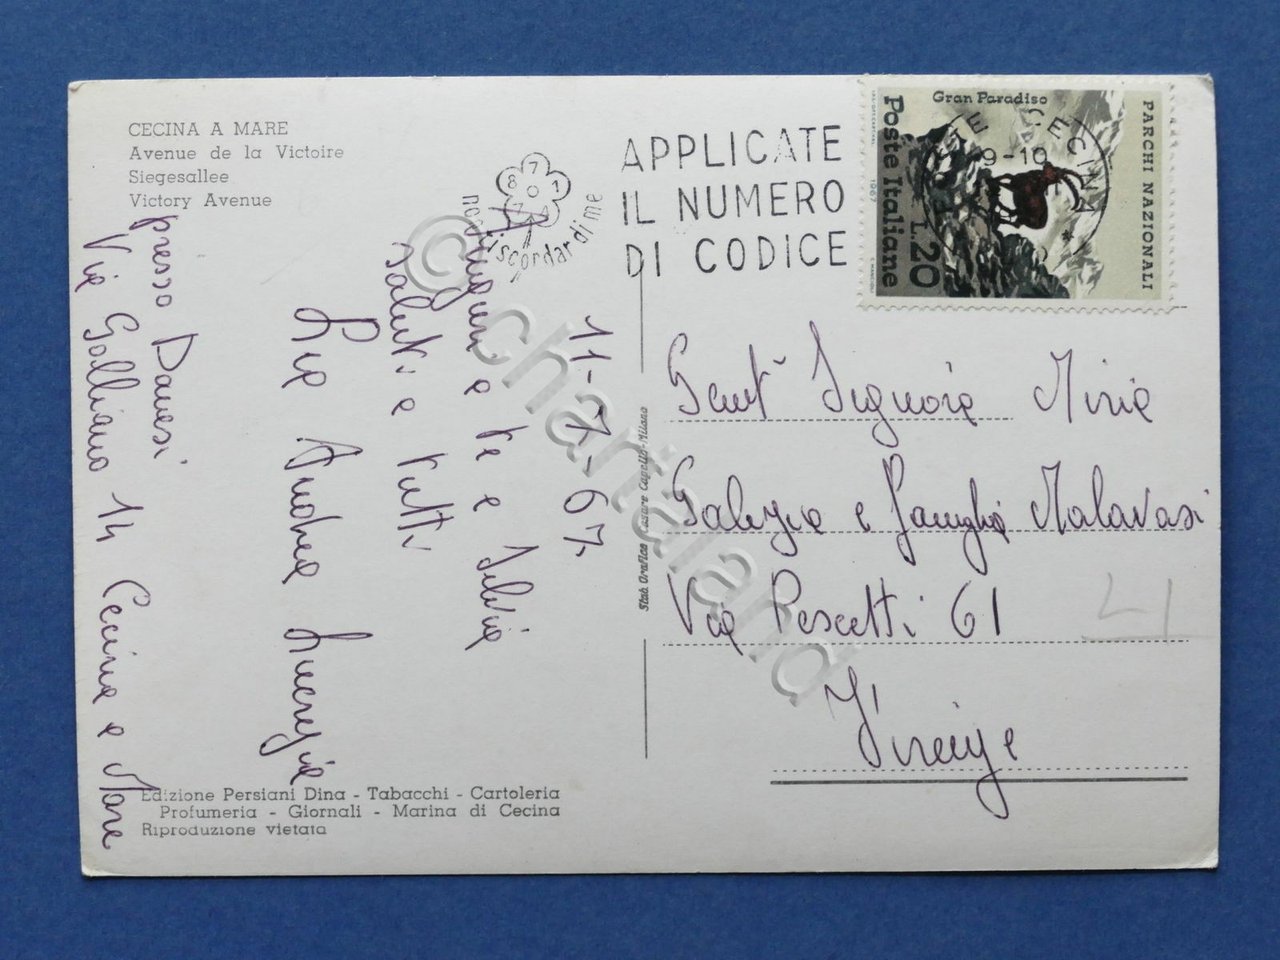 CECINA A MARE
Avenue de la Victoire
Siegesallee
Victory Avenue
non ti scordar di me
APPLICATE
IL NUMERO
DI CODICE
Gran Paradiso
PARCHI NAZIONALI
Poste Italiane
L.20
1967
CECINA
9-10
11-7-67
Auguri a te e Silvia
saluti a tutti
Lia Andrea Lucrezia
presso Danesi
Via Galliano 14 Cecina a Mare
Stab. Grafico Cesare Capello-Milano
Gent. Signora Miria
Gabrzia e famiglia Malavasi
Via Pescetti 61
Firenze
Edizione Persiani Dina - Tabacchi - Cartoleria
Profumeria - Giornali - Marina di Cecina
Riproduzione vietata
© chartaland